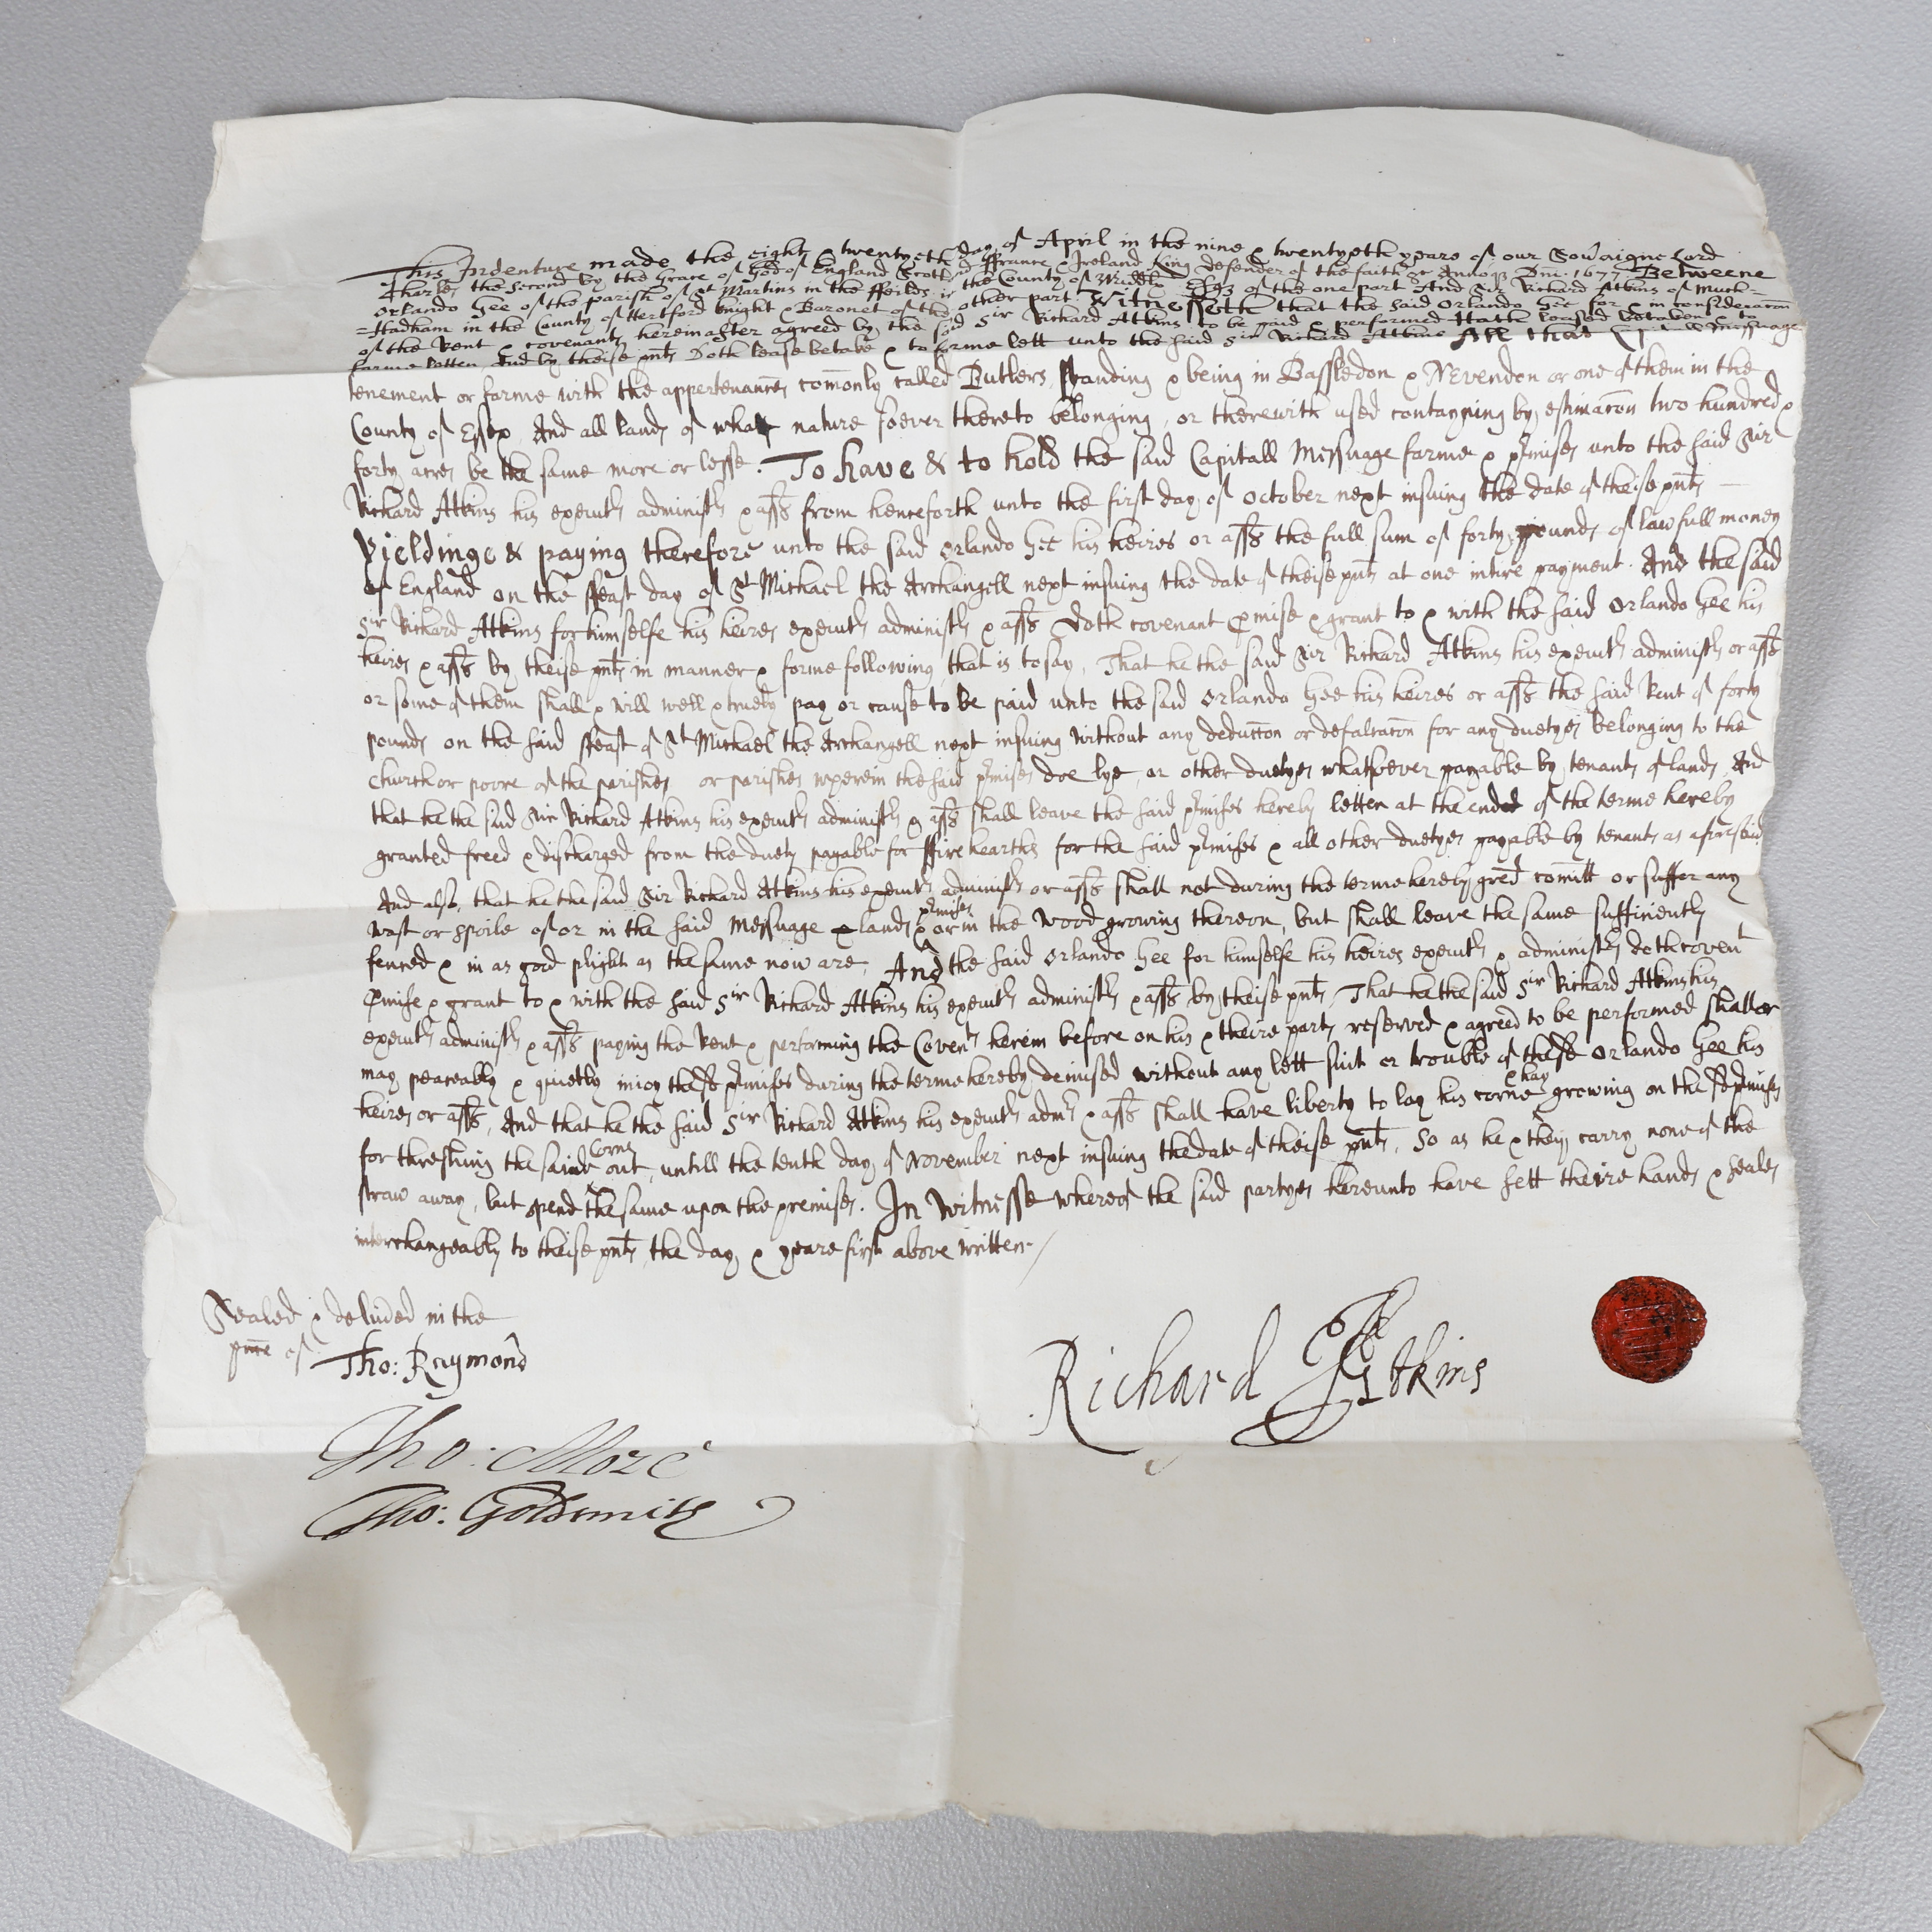 This Indenture made the eight & twentyeth day of April in the nine & twentyeth yeare of our Sov'aigne Lord
Charles the Second by the Grace of God of England Scotl'd ffrance & Ireland King defender of the faith &c Annoq Dni: 1677 Betweene
Orlando Gee of the parish of St Martins in the ffeilds in the County of Midd'x Esqz of the one part And Sir Richard Atkins of Much=
=Hadham in the County of Hertford Knight & Baronet of the other part Witnesseth that the said Orlando Gee for & in consideracon
of the Rent & covenants hereinafter agreed by the said Sir Richard Atkins to be paid & performed Hath leased betaken & to
farme letten And by theise pnts Doth lease betake & to farme lett unto the said Sir Richard Atkins All that Capitall Messuage
tenement or farme with the appertenances comonly called Butlers standing & being in Bassledon & Nevendon or one of them in the
County of Essex And all lands of what nature soever thereto belonging, or therewith used contayning by estimacon two hundred &
forty acres be the same more or lesse. To have & to hold the said Capitall Messuage farme & pmises unto the said Sir
Richard Atkins his executs administs & asss from henceforth unto the first day of October next insuing the date of theise pnts
Yieldinge & paying therefore unto the said Orlando Gee his heires or asss the full sum of forty pounds of lawfull money
of England on the ffeast day of St Michael the Archangell next insuing the date of theise pnts at one intire payment. And the said
Sir Richard Atkins for himselfe his heires executs administs & asss doth covenant pmise & grant to & with the said Orlando Gee his
heires & asss by theise pnts in manner & forme following, that is to say, That he the said Sir Richard Atkins his executs administs or asss
or some of them shall & will well & truely pay or cause to be paid unto the said Orlando Gee his heires or asss the said Rent of forty
pounds on the said ffeast of St Michael the Archangell next insuing without any deduccon or defalcacon for any duetyes belonging to the
church or poore of the parishes or parishes wherein the said pmises doe lye, or other duetyes whatsoever payable by tenants of lands, And
that he the said Sir Richard Atkins his executs administs & asss shall leave the said pmises hereby letten at the end of the terme hereby
granted freed & discharged from the duety payable for ffire hearths for the said pmises & all other duetyes payable by tenants as aforesaid
And also, that he the said Sir Richard Atkins his executs administs or asss shall not during the terme hereby gred comitt or suffer any
wast or spoile of or in the said Messuage & lands & pmises or in the Wood growing thereon, but shall leave the same suffitiently
fenced & in as good plight as the same now are, And the said Orlando Gee for himselfe his heires executs & administs doth covent
pmise & grant to & with the said Sir Richard Atkins his executs administs & asss by theise pnts, That he the said Sir Richard Atkins his
executs administs & asss paying the Rent & performing the Covents herein before on his & theire parts reserved & agreed to be performed shall or
may peaceably & quietly injoy the sd pmises during the terme hereby demised without any lett suit or trouble of the sd Orlando Gee his
heires or asss, And that he the said Sir Richard Atkins his executs adms & asss shall have liberty to lay his corne & hay growing on the sd pmises
for threshing the said Corne out, untill the tenth day of November next insuing the date of theise pnts, So as he & they carry none of the
straw away, but spend the same upon the premises. In Witnesse whereof the said partyes hereunto have sett theire hands & seales
interchangeably to theise pnts the day & yeare first above written
Sealed & deliv'ed in the
pnce of
Tho: Raymond
Richard Atkins
Tho: More
Tho: Goldsmith